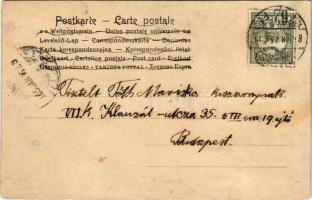 Postkarte — Carte postale
Weltpostverein — Union postale universelle
Levelező-Lap — Correspondenzkarte
Karta korespondencyjna — Korespondenční lístek
Cartolina postale — Post card — Brefkort
TARJETA POSTAL
Tóth Mariska kisasszonynak
VII.K. Klauzál-utcza 35. III em 19 ajtó
Budapest.